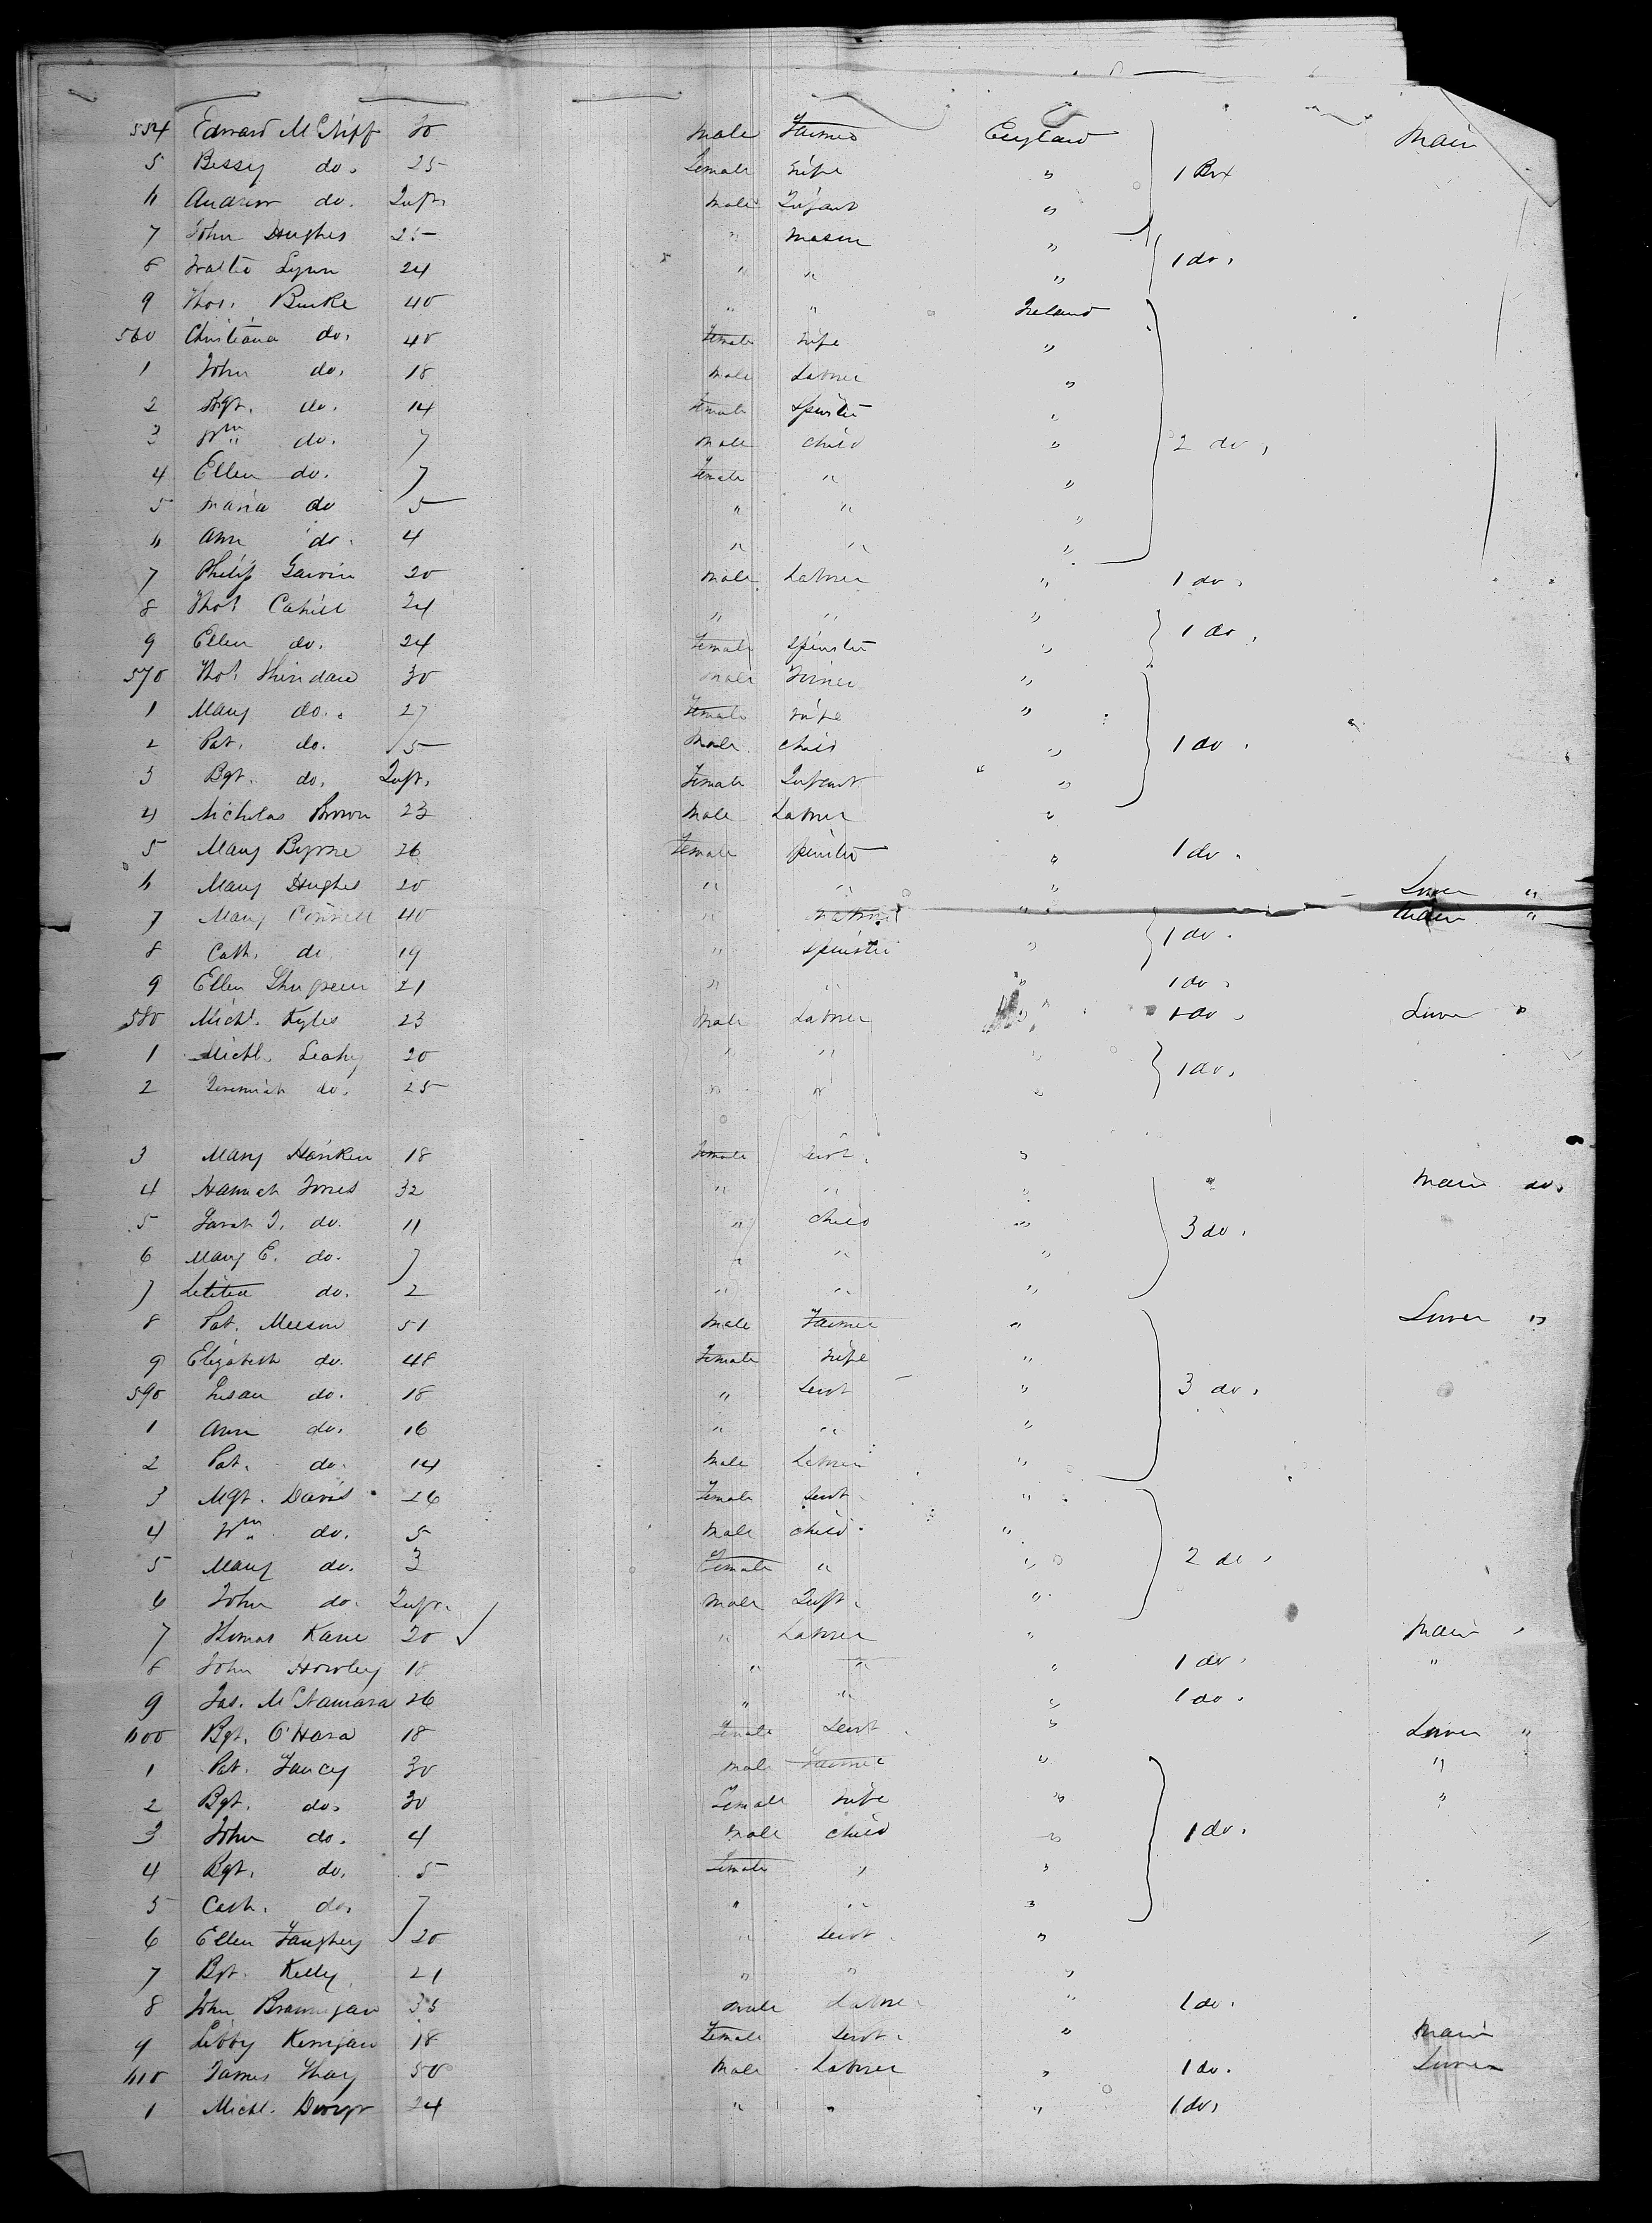 554 Edward McCliff 30 Male Farmer England Main
5 Bessy do. 25 Female Wife " 1 Box
6 Andrew do. Inft. Male Infant "
7 John Hughes 25 " Mason "
8 Walter Lynn 24 " " " 1 do.
9 Thos. Burke 40 " " Ireland
560 Christiana do. 40 Female Wife "
1 John do. 18 Male Labrer "
2 do. 14 Female Spinster "
3 Wm do. 7 Male Child " 2 do.
4 Ellen do. 7 Female " "
5 Maria do 5 " " "
6 Ann do. 4 " " "
7 Philip Gavin 20 Male Labrer " 1 do.
8 Thos. Cahill 24 " " "
9 Ellen do. 24 Female Spinster " 1 do.
570 Thos. Sheridan 30 Male "
1 Mary do. 27 Female Wife "
2 Pat. do. 5 Male Child " 1 do.
3 Bgt. do. Inft. Female Infant "
4 Nicholas Brown 23 Male Labrer "
5 Mary Byrne 26 Female Spinster " 1 do.
6 Mary Hughes 20 " " " Lower "
7 Mary Connell 40 " " Main "
8 Cath. do 19 " Spinster " 1 do.
9 Ellen 21 " " " 1 do.
580 Michl. Kyles 23 Male Labrer " 1 do. Lower "
1 Michl. Leahy 20 " " "
2 Jeremiah do. 25 " " " 1 do.
3 Mary 18 Female Servt. "
4 Hannah Jones 32 " " " Main do.
5 Sarah J. do. 11 " Child " 3 do.
6 Mary E. do. 7 " " "
7 Letitia do. 2 " " "
8 Pat. Meeson 51 Male Farmer " Lower "
9 Elizabeth do. 48 Female Wife "
590 Susan do. 18 " Servt " 3 do.
1 Ann do. 16 " " "
2 Pat. do. 14 Male Labrer "
3 Mgt. Davis 26 Female Servt. "
4 Wm do. 5 Male Child "
5 Mary do. 3 Female " " 2 do.
6 John do. Inft. Male Inft. "
7 Thomas Kane 20 " Labrer " Main "
8 John Howley 18 " " " 1 do. "
9 Jas. McNamara 26 " " " 1 do.
600 Bgt. O'Hara 18 Female Servt. " Lower "
1 Pat. Fancy 30 Male Farmer " "
2 Bgt. do. 30 Female Wife " "
3 John do. 4 Male Child " 1 do.
4 Bgt. do. 5 Female " "
5 Cath. do. 7 " " "
6 Ellen Faughey 20 " Servt. "
7 Bgt. Kelly 21 " " "
8 John Brannigan 35 Male Labrer " 1 do.
9 Libby Kerrigan 18 Female Servt. " Main
610 James 50 Male Labrer " 1 do. Lower
1 Michl. 24 " " " 1 do.